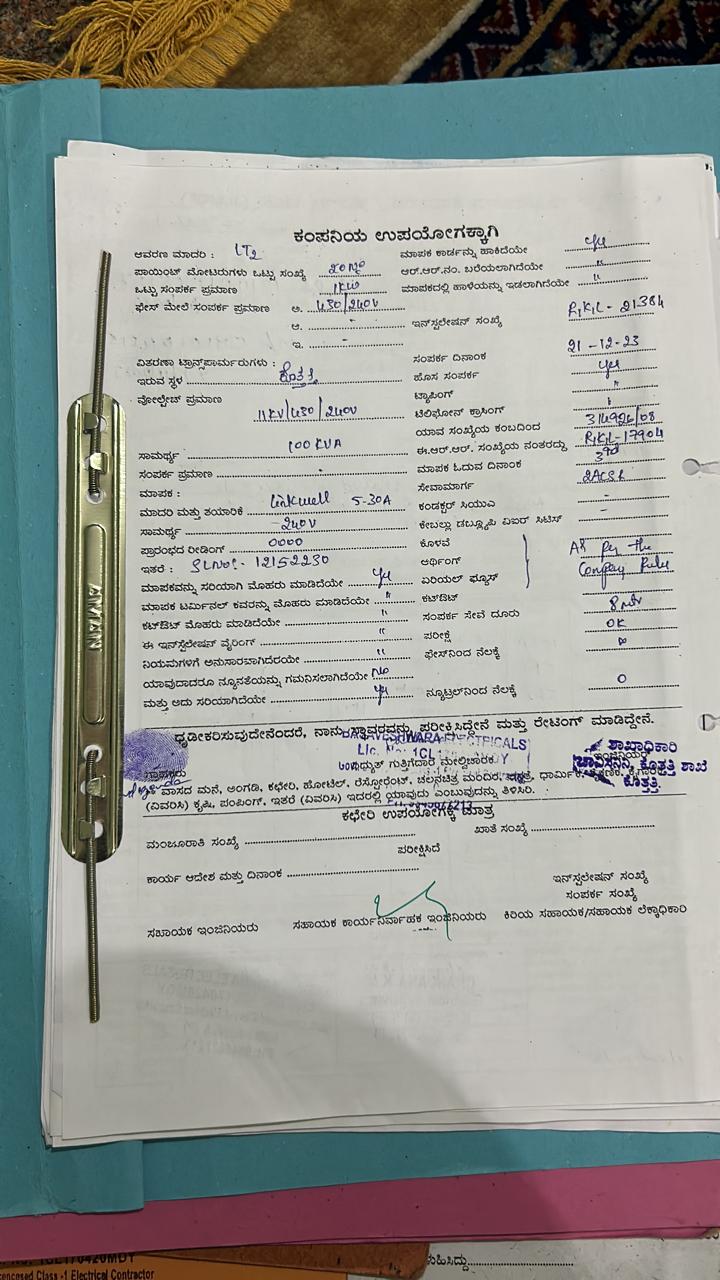 ಕಂಪನಿಯ ಉಪಯೋಗಕ್ಕಾಗಿ
ಆವರಣ ಮಾದರಿ : LT2 ಮಾಪಕ ಕಾರ್ಡನ್ನು ಹಾಕಿದೆಯೇ yes
ಪಾಯಿಂಟ್ ಮೋಟರುಗಳು ಒಟ್ಟು ಸಂಖ್ಯೆ 20 No ಆರ್.ಆರ್.ನಂ. ಬರೆಯಲಾಗಿದೆಯೇ "
ಒಟ್ಟು ಸಂಪರ್ಕ ಪ್ರಮಾಣ 1KW ಮಾಪಕದಲ್ಲಿ ಹಾಳೆಯನ್ನು ಇಡಲಾಗಿದೆಯೇ "
ಫೇಸ್ ಮೇಲೆ ಸಂಪರ್ಕ ಪ್ರಮಾಣ ಅ. 430/240V
ಆ. - ಇನ್‌ಸ್ಟಲೇಷನ್ ಸಂಖ್ಯೆ RKKL - 21384
ಇ. -
ವಿತರಣಾ ಟ್ರಾನ್ಸ್‌ಪಾರ್ಮರುಗಳು : ಸಂಪರ್ಕ ದಿನಾಂಕ 21-12-23
ಇರುವ ಸ್ಥಳ ಕೊತ್ತತ್ತಿ ಹೊಸ ಸಂಪರ್ಕ yes
ವೋಲ್ಟೇಜ್ ಪ್ರಮಾಣ 11KV/430/240V ಟ್ಯಾಪಿಂಗ್ "
ಟೆಲಿಫೋನ್ ಕ್ರಾಸಿಂಗ್
ಯಾವ ಸಂಖ್ಯೆಯ ಕಂಬದಿಂದ 314926/08
ಸಾಮರ್ಥ್ಯ 100 KVA ಈ.ಆರ್.ಆರ್. ಸಂಖ್ಯೆಯ ನಂತರದ್ದು RKKL-17904
ಸಂಪರ್ಕ ಪ್ರಮಾಣ - ಮಾಪಕ ಓದುವ ದಿನಾಂಕ 3rd
ಮಾಪಕ : ಸೇವಾಮಾರ್ಗ 2ACSR
ಮಾದರಿ ಮತ್ತು ತಯಾರಿಕೆ Linkwell 5-30A ಕಂಡಕ್ಟರ್ ಸಿಯುಎ -
ಸಾಮರ್ಥ್ಯ 240V ಕೇಬಲ್ಲು ಡಬ್ಲ್ಯೂಪಿ ಏಐರ್ ಸಿಟಿಸ್ -
ಪ್ರಾರಂಭದ ರೀಡಿಂಗ್ 0000 ಕೊಳವೆ
ಇತರೆ : SLNO:- 12152230 ಆರ್ಥಿಂಗ್ As per the
ಮಾಪಕವನ್ನು ಸರಿಯಾಗಿ ಮೊಹರು ಮಾಡಿದೆಯೇ yes ಏರಿಯಲ್ ಫ್ಯೂಸ್ Company Rules
ಮಾಪಕ ಟರ್ಮಿನಲ್ ಕವರನ್ನು ಮೊಹರು ಮಾಡಿದೆಯೇ " ಕಟ್‌ಔಟ್
ಕಟ್‌ಔಟ್ ಮೊಹರು ಮಾಡಿದೆಯೇ " ಸಂಪರ್ಕ ಸೇವೆ ದೂರು 8 mtr
ಈ ಇನ್‌ಸ್ಟಲೇಷನ್ ವೈರಿಂಗ್ " ಪರೀಕ್ಷೆ OK
ನಿಯಮಗಳಿಗೆ ಅನುಸಾರವಾಗಿದೆರಯೇ " ಫೇಸ್‌ನಿಂದ ನೆಲಕ್ಕೆ ∞
ಯಾವುದಾದರೂ ನ್ಯೂನತೆಯನ್ನು ಗಮನಿಸಲಾಗಿದೆಯೇ No
ಮತ್ತು ಅದು ಸರಿಯಾಗಿದೆಯೇ yes ನ್ಯೂಟ್ರಲ್‌ನಿಂದ ನೆಲಕ್ಕೆ 0
ಧೃಡೀಕರಿಸುವುದೇನೆಂದರೆ, ನಾನು ಸ್ಥಾವರವನ್ನು ಪರೀಕ್ಷಿಸಿದ್ದೇನೆ ಮತ್ತು ರೇಟಿಂಗ್ ಮಾಡಿದ್ದೇನೆ.
ELECTRICALS
ಶಾಖಾಧಿಕಾರಿ
ಗ್ರಾಹಕರು ವಿದ್ಯುತ್ ಗುತ್ತಿಗೆದಾರ ಮೇಲ್ವಿಚಾರಕ ಇಂಜಿನಿಯರು
ಚಾವಿಸನಿನಿ, ಕೊತ್ತತ್ತಿ ಶಾಖೆ
ಕೊತ್ತತ್ತಿ.
ವಾಸದ ಮನೆ, ಅಂಗಡಿ, ಕಛೇರಿ, ಹೋಟೆಲ್, ರೆಸ್ಟೋರೆಂಟ್, ಚಲನಚಿತ್ರ ಮಂದಿರ, ಧಾರ್ಮಿಕ,
(ವಿವರಿಸಿ) ಕೃಷಿ, ಪಂಪಿಂಗ್, ಇತರೆ (ವಿವರಿಸಿ) ಇದರಲ್ಲಿ ಯಾವುದು ಎಂಬುವುದನ್ನು ತಿಳಿಸಿರಿ.
ಕಛೇರಿ ಉಪಯೋಗಕ್ಕೆ ಮಾತ್ರ
ಮಂಜೂರಾತಿ ಸಂಖ್ಯೆ ಖಾತೆ ಸಂಖ್ಯೆ
ಪರೀಕ್ಷಿಸಿದೆ
ಕಾರ್ಯ ಆದೇಶ ಮತ್ತು ದಿನಾಂಕ
ಇನ್‌ಸ್ಪಲೇಷನ್ ಸಂಖ್ಯೆ
ಸಂಪರ್ಕ ಸಂಖ್ಯೆ
ಸಹಾಯಕ ಇಂಜಿನಿಯರು ಸಹಾಯಕ ಕಾರ್ಯನಿರ್ವಾಹಕ ಇಂಜಿನಿಯರು ಕಿರಿಯ ಸಹಾಯಕ/ಸಹಾಯಕ ಲೆಕ್ಕಾಧಿಕಾರಿ
AMAN
Class -1 Electrical Contractor